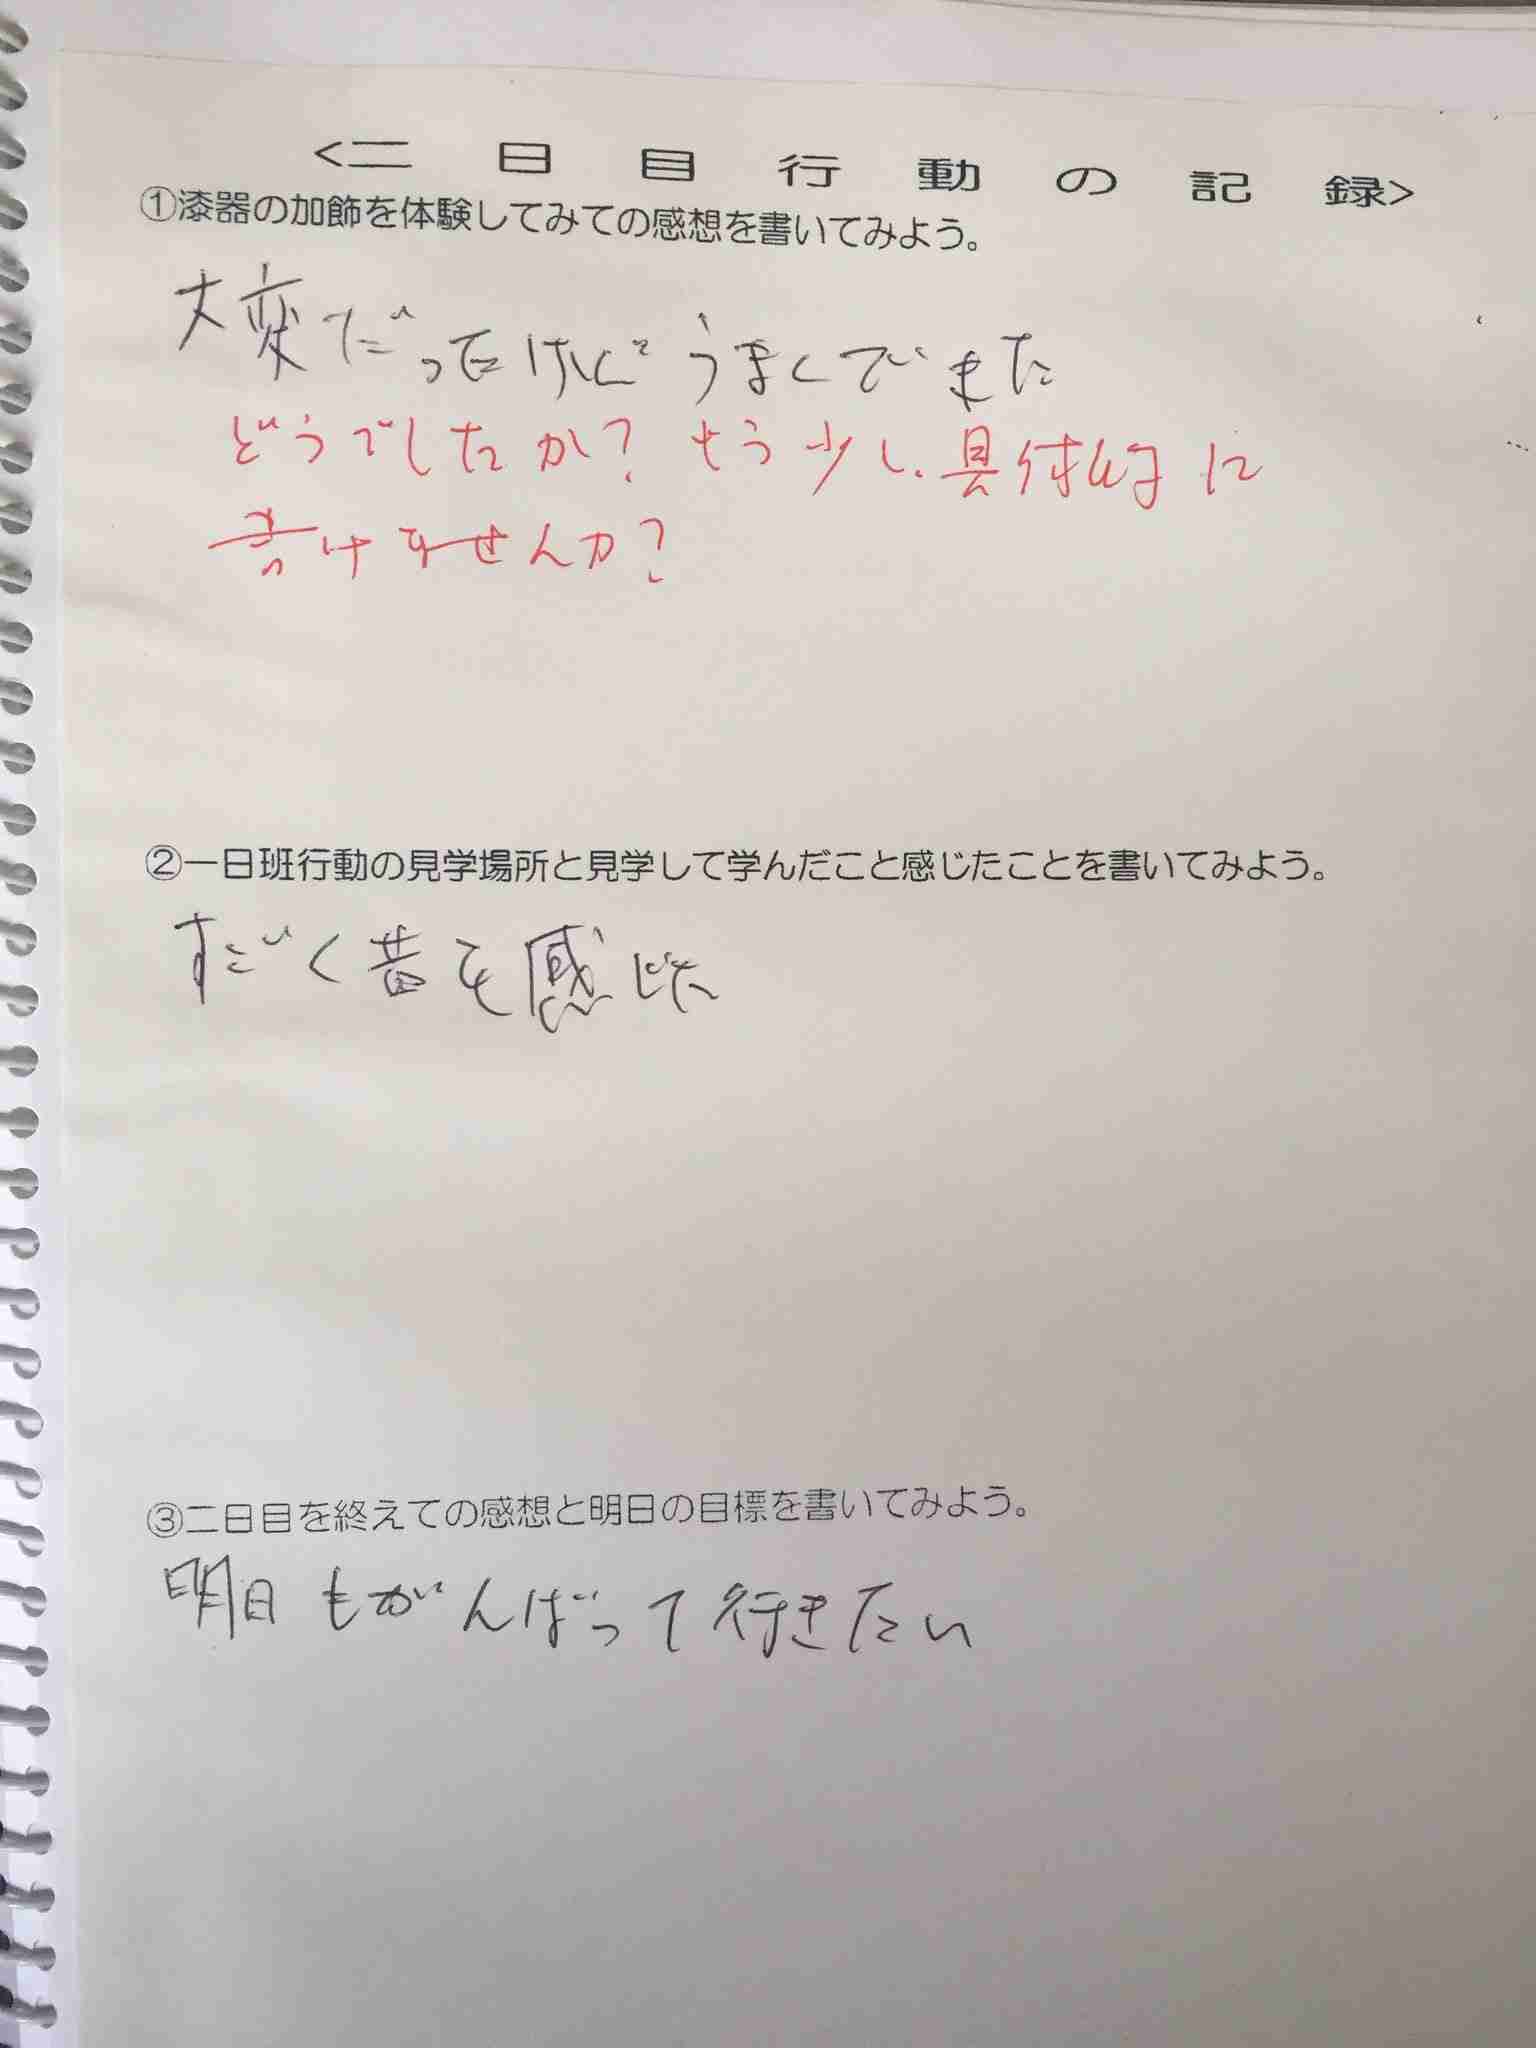 <二日目行動の記録>
①漆器の加飾を体験してみての感想を書いてみよう。
大変だったけどうまくできた
どうでしたか？もう少し具体的に
書けませんか？
②一日班行動の見学場所と見学して学んだこと感じたことを書いてみよう。
すごく昔を感じた
③二日目を終えての感想と明日の目標を書いてみよう。
明日もがんばって行きたい